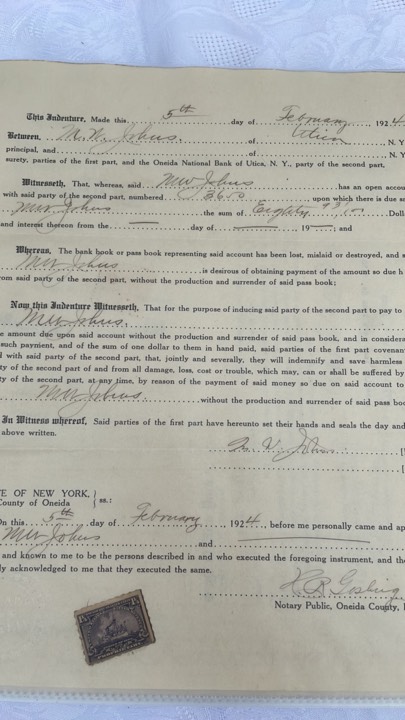 This Indenture, Made this 5th day of February 1924
Between, M. W. Johns of Utica N. Y
principal, and of N. Y
surety, parties of the first part, and the Oneida National Bank of Utica, N. Y., party of the second part.
Witnesseth, That, whereas, said MW Johns has an open accou
with said party of the second part, numbered 3650 upon which there is due sa
MW Johns the sum of Eighty Dolla
and interest thereon from the day of 19 , and
Whereas, The bank book or pass book representing said account has been lost, mislaid or destroyed, and s
MW Johns is desirous of obtaining payment of the amount so due h
rom said party of the second part, without the production and surrender of said pass book;
Now this Indenture Witnesseth, That for the purpose of inducing said party of the second part to pay to
MW Johns.
e amount due upon said account without the production and surrender of said pass book, and in considera
such payment, and of the sum of one dollar to them in hand paid, said parties of the first part covenan
d with said party of the second part, that, jointly and severally, they will indemnify and save harmless
ty of the second part of and from all damage, loss, cost or trouble, which may, can or shall be suffered by
ty of the second part, at any time, by reason of the payment of said money so due on said account to
MW Johns without the production and surrender of said pass boo
In Witness whereof, Said parties of the first part have hereunto set their hands and seals the day and
above written.
Johns [
[
TE OF NEW YORK, } ss.:
County of Oneida
On this 5th day of February, 1924, before me personally came and ap
MW Johns and
and known to me to be the persons described in and who executed the foregoing instrument, and the
ly acknowledged to me that they executed the same.
Gosling
Notary Public, Oneida County,